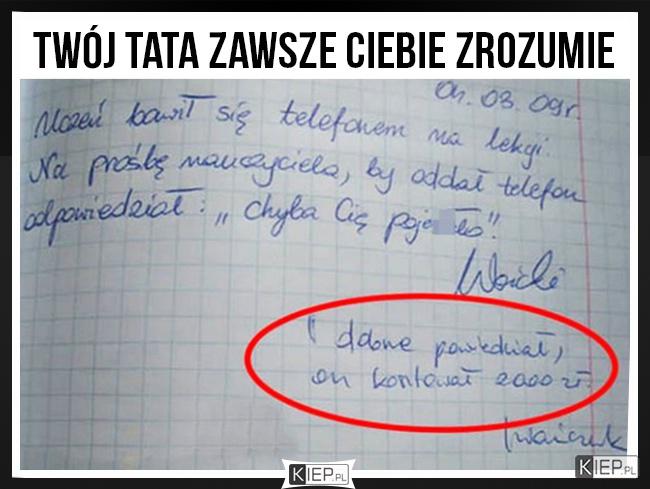 TWÓJ TATA ZAWSZE CIEBIE ZROZUMIE
04.03.09r.
Uczeń bawił się telefonem na lekcji.
Na prośbę nauczyciela, by oddał telefon
odpowiedział: „Chyba Cię poje ło".
I dobrze powiedział,
on kosztował 2000 zł.
KIEP.PL
KIEP.PL